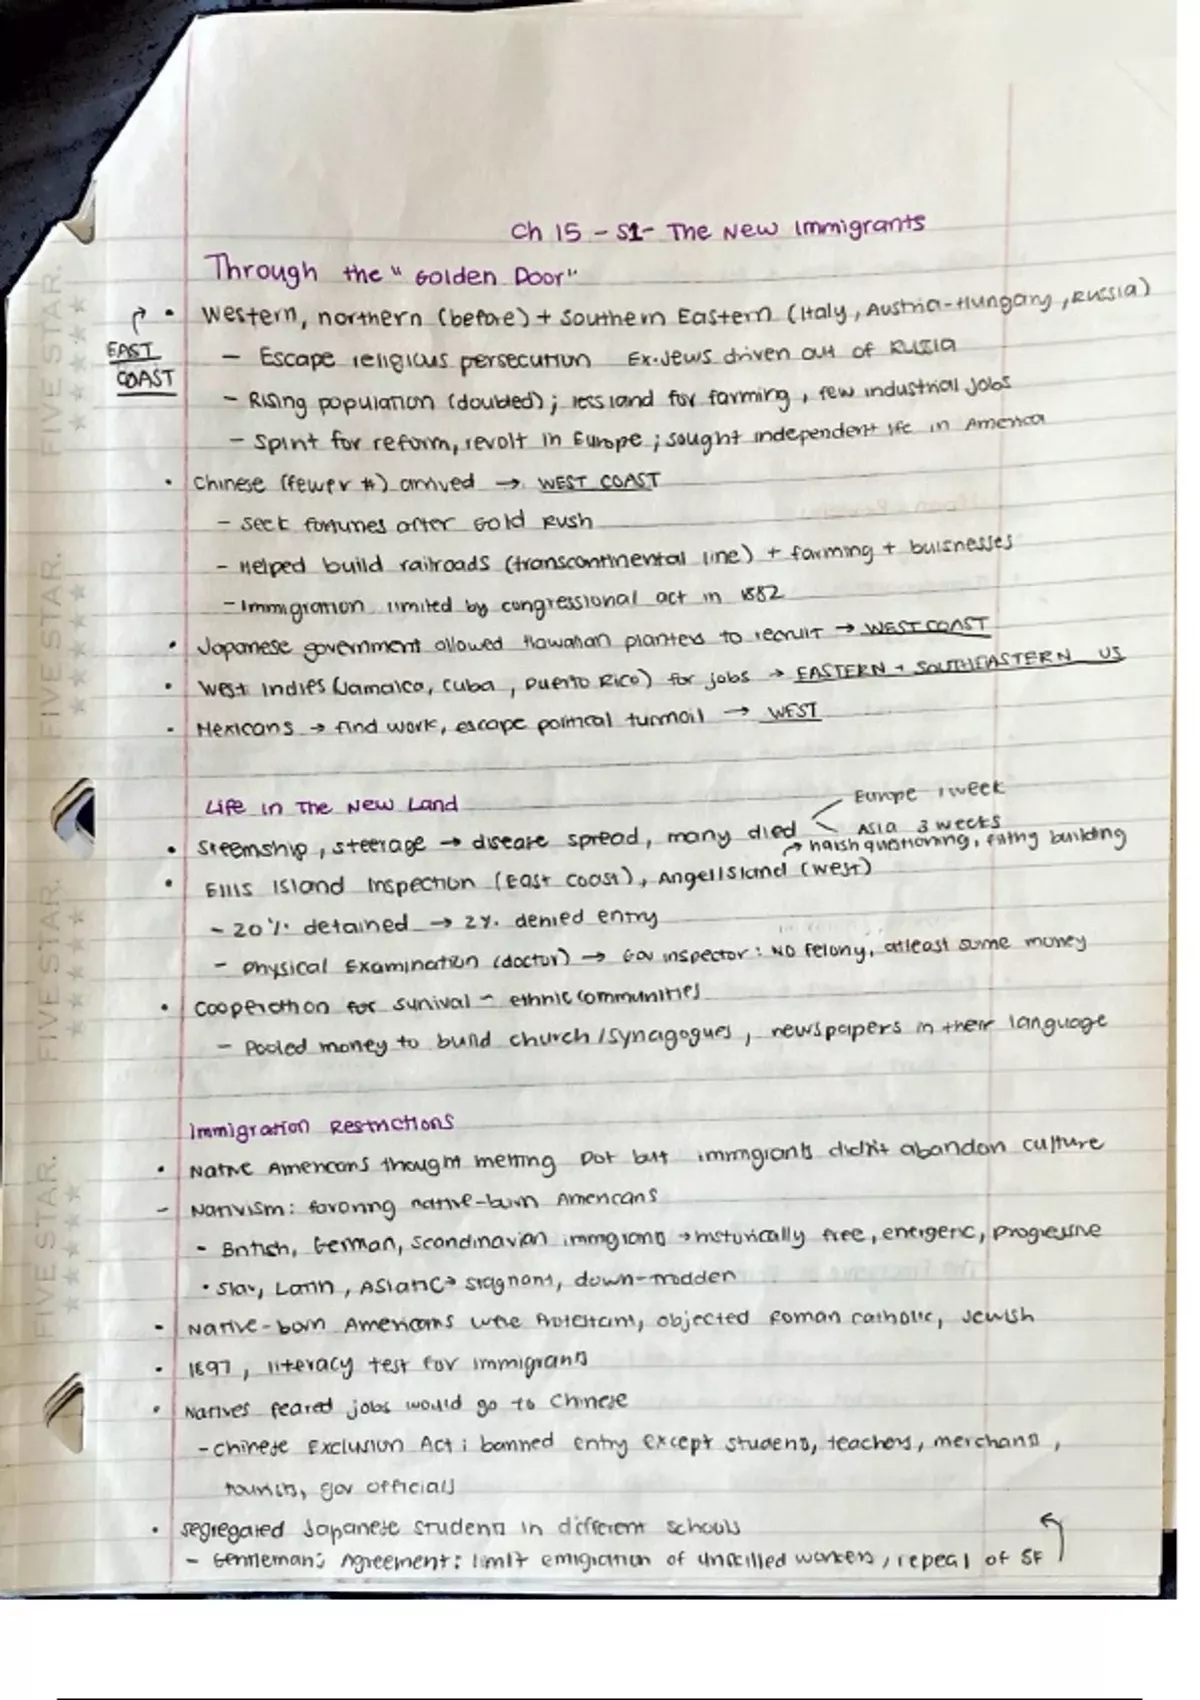 Ch 15 - S1- The New Immigrants
Through the "Golden Door"
• Western, northern (before) + Southern Eastern (Italy, Austria-Hungary, Russia)
EAST
COAST
- Escape religious persecution Ex. Jews driven out of Russia
- Rising population (doubled); less land for farming, few industrial jobs
- Spirit for reform, revolt in Europe; sought independent life in America
• Chinese (fewer #) arrived → WEST COAST
- Seek fortunes after Gold Rush
- Helped build railroads (transcontinental line) + farming + buisnesses
- Immigration limited by congressional act in 1882
• Japanese government allowed Hawaiian planters to recruit → WEST COAST
• West Indies (Jamaica, Cuba, Puerto Rico) for jobs → EASTERN + SOUTHEASTERN US
• Mexicans → find work, escape political turmoil → WEST
Life in The New Land
Europe 1 week
• Steemship, steerage → disease spread, many died
Asia 3 weeks
→ harsh questioning, filthy building
• Ellis Island Inspection (East Coast), Angel Island (West)
- 20% detained → 2% denied entry
- Physical Examination (doctor) → Gov inspector: No felony, atleast some money
• Cooperation for survival - ethnic communities
- Pooled money to build church/synagogues, newspapers in their language
Immigration Restrictions
• Native Americans thought melting pot but immigrants didn't abandon culture
- Nativism: favoring native-born Americans
- British, German, Scandinavian immigrants → historically free, energetic, progressive
• Slav, Latin, Asiatic → stagnant, down-trodden
• Native-born Americans were Protestant, objected Roman catholic, Jewish
• 1897, literacy test for immigrants
• Natives feared jobs would go to Chinese
- Chinese Exclusion Act: banned entry except students, teachers, merchants,
tourists, gov officials
• Segregated Japanese students in different schools
- Gentleman's Agreement: limit emigration of unskilled workers, repeal of SF
FIVE STAR.
FIVE STAR.
FIVE STAR.
FIVE STAR.